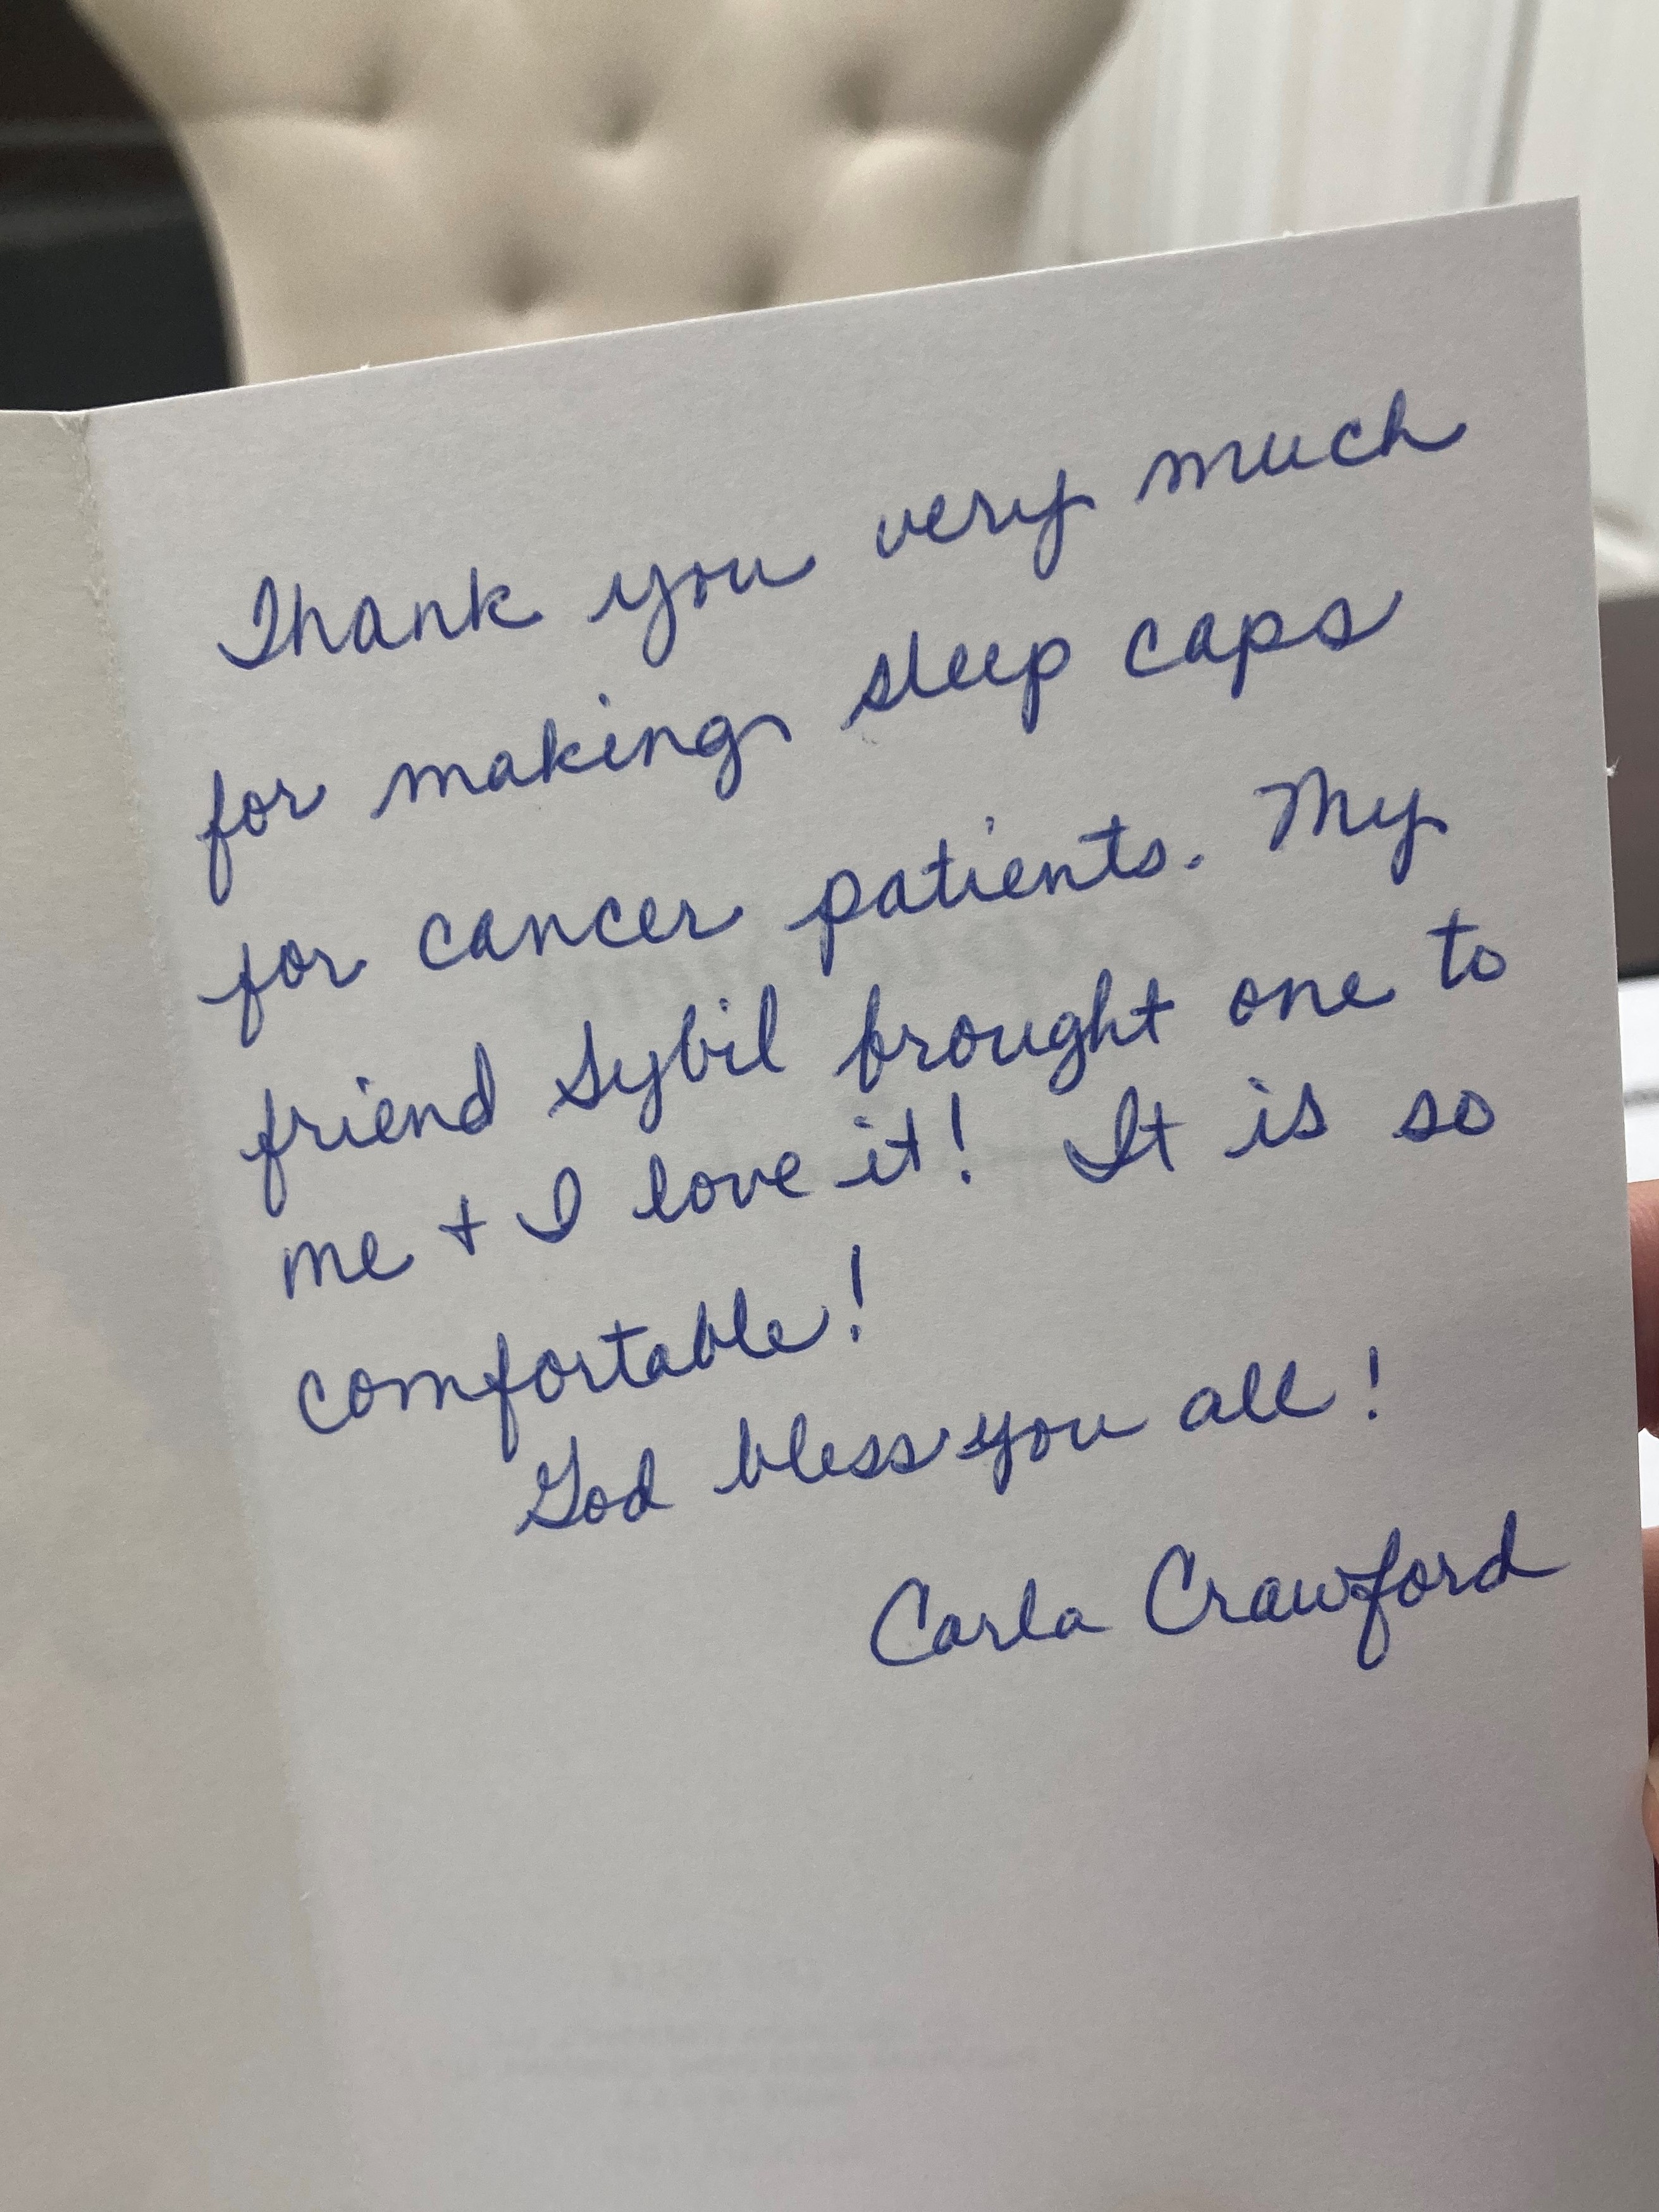 Thank you very much
for making sleep caps
for cancer patients. My
friend Sybil brought one to
me + I love it! It is so
comfortable!
God bless you all!
Carla Crawford